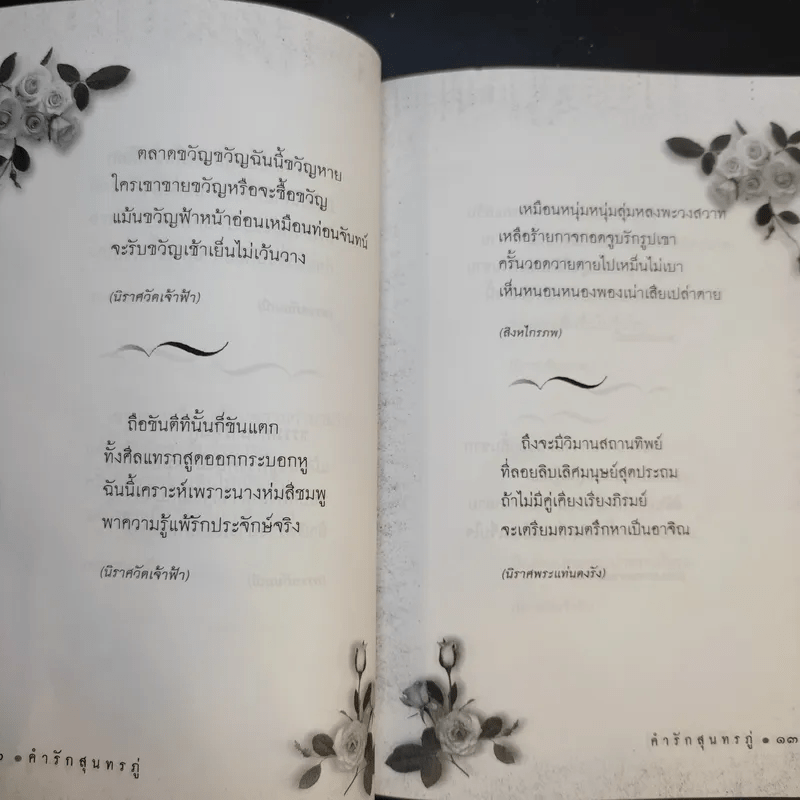 ตลาดขวัญขวัญฉันนี้ขวัญหาย
ใครเขาขายขวัญหรือจะซื้อขวัญ
แม้นขวัญฟ้าหน้าอ่อนเหมือนท่อนจันทน์
จะรับขวัญเช้าเย็นไม่เว้นวาง
(นิราศวัดเจ้าฟ้า)
ถือขันตีทีนั้นก็ขันแตก
ทั้งศีลแทรกสูดออกกระบอกหู
ฉันนี้เคราะห์เพราะนางห่มสีชมพู
พาความรู้แพ้รักประจักษ์จริง
(นิราศวัดเจ้าฟ้า)
● คำรักสุนทรภู่
เหมือนหนุ่มหนุ่มลุ่มหลงพะวงสวาท
เหลือร้ายกาจกอดจูบรักรูปเขา
ครั้นวอดวายตายไปเหม็นไม่เบา
เห็นหนอนหนองพองเน่าเสียเปล่าดาย
(สิงหไกรภพ)
ถึงจะมีวิมานสถานทิพย์
ที่ลอยลิบเลิศมนุษย์สุดประถม
ถ้าไม่มีคู่เคียงเรียงภิรมย์
จะเตรียมตรมตรึกหาเป็นอาจิณ
(นิราศพระแท่นดงรัง)
คำรักสุนทรภู่ ● ๑๓